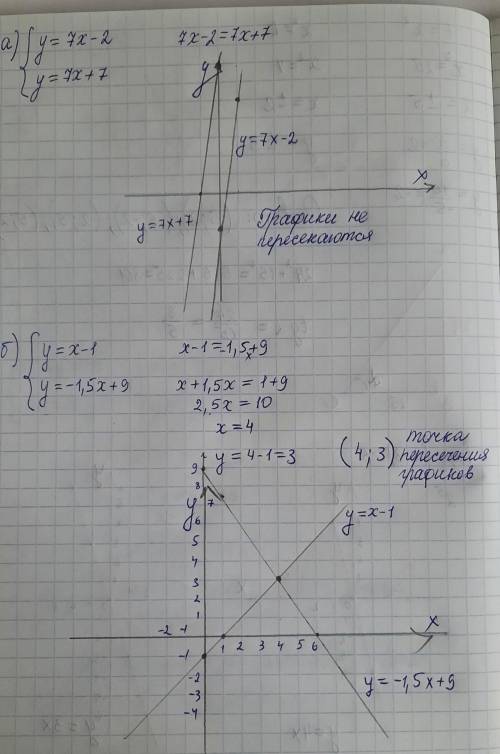 а) { y = 7x-2     7x-2=7x+7
y = 7x+7
y
y=7x-2
x
y=7x+7
Графики не
пересекаются
б) { y = x-1     x-1=-1,5x+9
y=-1,5x+9     x+1,5x = 1+9
2,5x=10
x=4
y = 4-1=3     (4;3) точка
пересечения
графиков
9
8
y 7
6
y=x-1
5
4
3
2
1
x
-2 -1
1 2 3 4 5 6
-1
-2
y = -1,5x+9
-3
-4